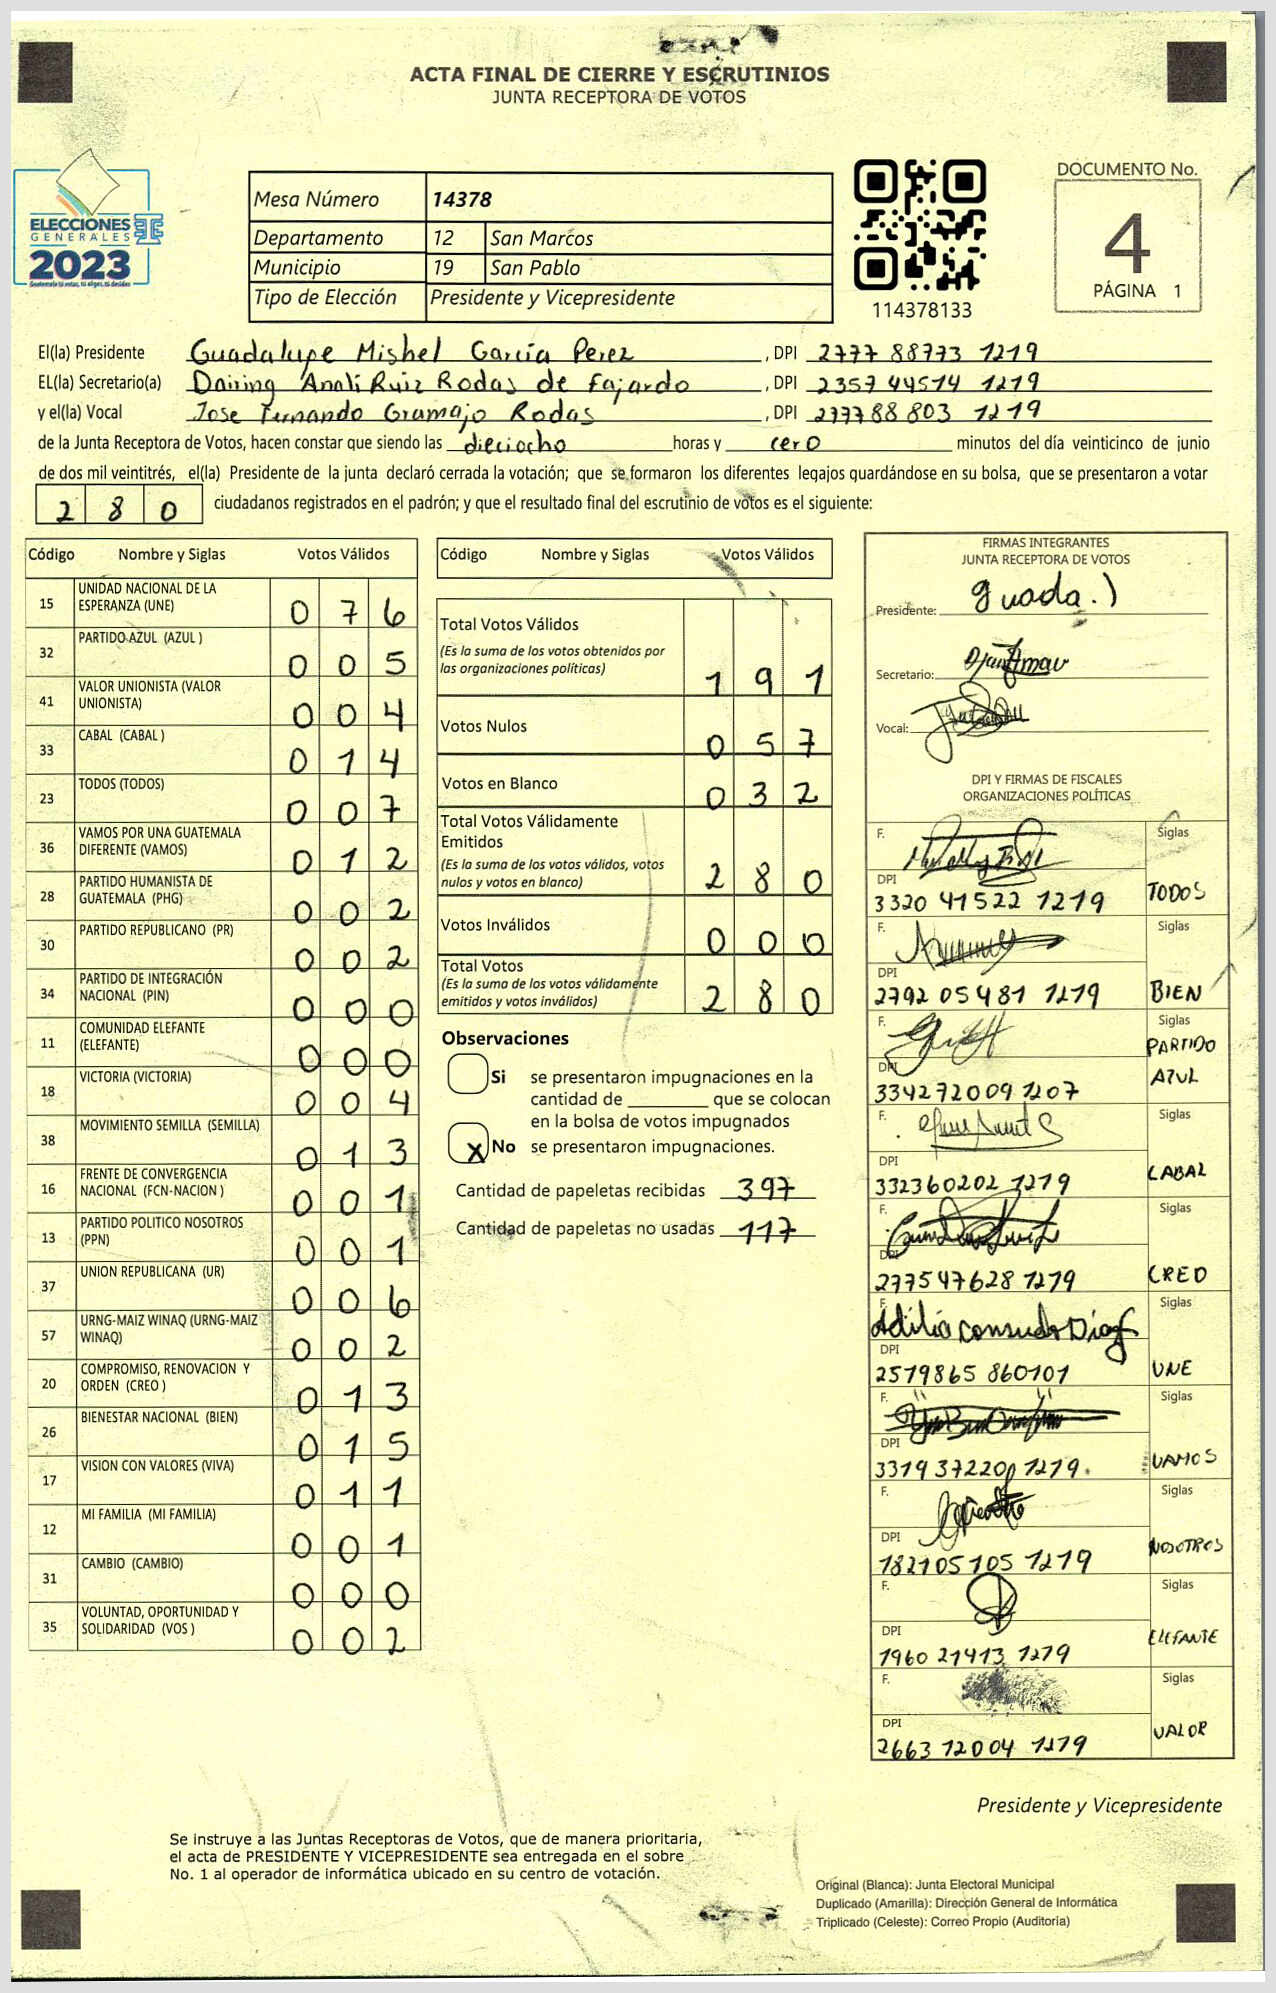 ACTA FINAL DE CIERRE Y ESCRUTINIOS
JUNTA RECEPTORA DE VOTOS
ELECCIONES
GENERALES
2023
Guatemala tú votas, tú eliges, tú decides
Mesa Número 14378
Departamento 12 San Marcos
Municipio 19 San Pablo
Tipo de Elección Presidente y Vicepresidente
114378133
DOCUMENTO No.
4
PÁGINA 1
El(la) Presidente Guadalupe Mishel García Perez, DPI 2777 88773 1219
EL(la) Secretario(a) Dairing Anali Ruiz Rodas de Fajardo, DPI 2357 44514 1219
y el(la) Vocal Jose Fernando Gramajo Rodas, DPI 277788 803 1219
de la Junta Receptora de Votos, hacen constar que siendo las dieciocho horas y cero minutos del día veinticinco de junio
de dos mil veintitrés, el(la) Presidente de la junta declaró cerrada la votación; que se formaron los diferentes legajos guardándose en su bolsa, que se presentaron a votar
2 8 0 ciudadanos registrados en el padrón; y que el resultado final del escrutinio de votos es el siguiente:
Código Nombre y Siglas Votos Válidos
15 UNIDAD NACIONAL DE LA
ESPERANZA (UNE) 0 7 6
32 PARTIDO AZUL (AZUL ) 0 0 5
41 VALOR UNIONISTA (VALOR
UNIONISTA) 0 0 4
33 CABAL (CABAL ) 0 1 4
23 TODOS (TODOS) 0 0 7
36 VAMOS POR UNA GUATEMALA
DIFERENTE (VAMOS) 0 1 2
28 PARTIDO HUMANISTA DE
GUATEMALA (PHG) 0 0 2
30 PARTIDO REPUBLICANO (PR) 0 0 2
34 PARTIDO DE INTEGRACIÓN
NACIONAL (PIN) 0 0 0
11 COMUNIDAD ELEFANTE
(ELEFANTE) 0 0 0
18 VICTORIA (VICTORIA) 0 0 4
38 MOVIMIENTO SEMILLA (SEMILLA) 0 1 3
16 FRENTE DE CONVERGENCIA
NACIONAL (FCN-NACION ) 0 0 1
13 PARTIDO POLITICO NOSOTROS
(PPN) 0 0 1
37 UNION REPUBLICANA (UR) 0 0 6
57 URNG-MAIZ WINAQ (URNG-MAIZ
WINAQ) 0 0 2
20 COMPROMISO, RENOVACION Y
ORDEN (CREO ) 0 1 3
26 BIENESTAR NACIONAL (BIEN) 0 1 5
17 VISION CON VALORES (VIVA) 0 1 1
12 MI FAMILIA (MI FAMILIA) 0 0 1
31 CAMBIO (CAMBIO) 0 0 0
35 VOLUNTAD, OPORTUNIDAD Y
SOLIDARIDAD (VOS ) 0 0 2
Código Nombre y Siglas Votos Válidos
Total Votos Válidos
(Es la suma de los votos obtenidos por
las organizaciones políticas) 1 9 1
Votos Nulos 0 5 7
Votos en Blanco 0 3 2
Total Votos Válidamente
Emitidos
(Es la suma de los votos válidos, votos
nulos y votos en blanco) 2 8 0
Votos Inválidos 0 0 0
Total Votos
(Es la suma de los votos válidamente
emitidos y votos inválidos) 2 8 0
Observaciones
Si se presentaron impugnaciones en la
cantidad de ________ que se colocan
en la bolsa de votos impugnados
X No se presentaron impugnaciones.
Cantidad de papeletas recibidas 397
Cantidad de papeletas no usadas 117
FIRMAS INTEGRANTES
JUNTA RECEPTORA DE VOTOS
Presidente: guada.)
Secretario:
Vocal:
DPI Y FIRMAS DE FISCALES
ORGANIZACIONES POLÍTICAS
F. Siglas
DPI
3320 41522 1219 TODOS
F. Siglas
DPI
2792 05481 1219 BIEN
F. Siglas
PARTIDO
DPI AZUL
334272009 1207
F. Siglas
DPI
332360202 1219 CABAL
F. Siglas
DPI
277547628 1219 CREO
F. Adilia Consuelo Diaz Siglas
DPI
2579865 860101 UNE
F. Siglas
DPI
3319 37220 1219. VAMOS
F. Siglas
DPI
182105105 1219 NOSOTROS
F. Siglas
DPI
1960 21413 1219 ELEFANTE
F. Siglas
DPI
2663 12004 1219 VALOR
Presidente y Vicepresidente
Se instruye a las Juntas Receptoras de Votos, que de manera prioritaria,
el acta de PRESIDENTE Y VICEPRESIDENTE sea entregada en el sobre
No. 1 al operador de informática ubicado en su centro de votación.
Original (Blanca): Junta Electoral Municipal
Duplicado (Amarilla): Dirección General de Informática
Triplicado (Celeste): Correo Propio (Auditoría)